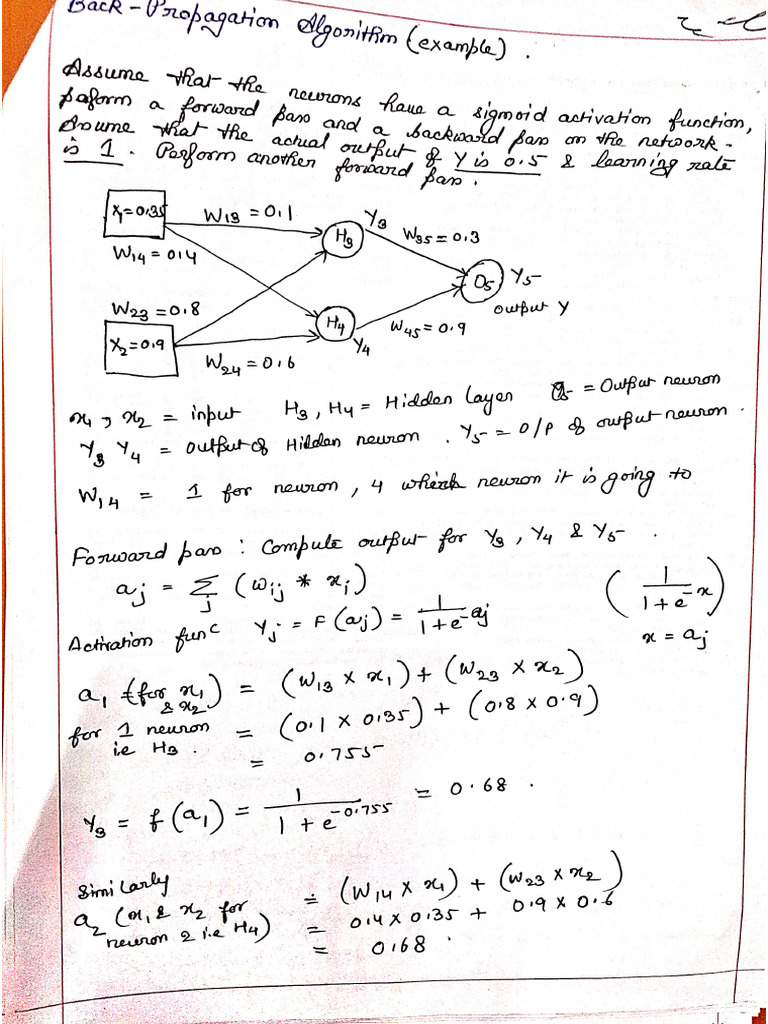 Back-Propagation Algorithm (example).
Assume that the neurons have a sigmoid activation function,
paform a forward pass and a backward pass on the network.
Assume that the actual output of Y is 0.5 & learning rate
is 1. Perform another forward pass.
X1=0.35
W13 = 0.1
Y3
W35 = 0.3
H3
W14 = 0.4
O5
Y5
output Y
W23 = 0.8
H4
W45 = 0.9
X2=0.9
Y4
W24 = 0.6
x1, x2 = input H3, H4 = Hidden Layer O5 = Output neuron
Y3 Y4 = output of Hidden neuron. Y5 = O/P of output neuron.
W14 = 1 for neuron, 4 which neuron it is going to
Forward pass : Compute output for Y3, Y4 & Y5.
aj = Σj (wij * xi)
( 1 / 1 + e^-x )
Activation func Yj = F(aj) = 1 / 1 + e^-aj
x = aj
a1 (for x1 & x2) = (W13 × x1) + (W23 × x2)
for 1 neuron = (0.1 × 0.35) + (0.8 × 0.9)
i.e H3. = 0.755
Y3 = f(a1) = 1 / 1 + e^-0.755 = 0.68.
Similarly
a2 (x1 & x2 for = (W14 × x1) + (W23 × x2)
neuron 2 i.e H4) = 0.4 × 0.35 + 0.9 × 0.6
= 0.68.